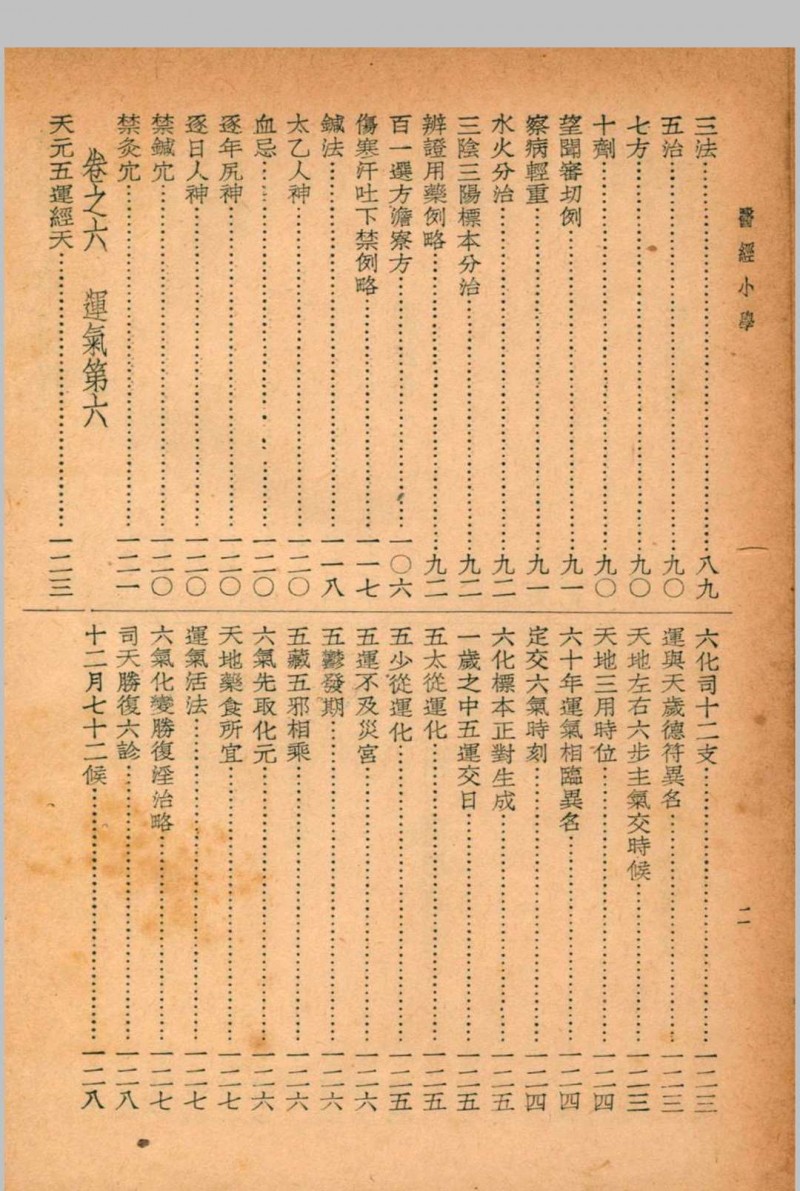 醫經小學
二
三法……八九
五治……九〇
七方……九〇
十劑……九〇
望聞審切例……九一
察病輕重……九一
水火分治……九二
三陰三陽標本分治……九二
辨證用藥例略……九二
百一選方澹寮方……一〇六
傷寒汗吐下禁例略……一一七
鍼法……一一八
太乙人神……一二〇
血忌……一二〇
逐年尻神……一二〇
逐日人神……一二〇
禁鍼穴……一二〇
禁灸穴……一二一
卷之六 運氣第六
天元五運經天……一二三
六化司十二支……一二三
運與天歲德符異名……一二三
天地左右六步主氣交時候……一二三
天地三用時位……一二四
六十年運氣相臨異名……一二四
定交六氣時刻……一二四
六化標本正對生成……一二五
一歲之中五運交日……一二五
五太從運化……一二五
五少從運化……一二五
五運不及災宮……一二六
五鬱發期……一二六
五藏五邪相乘……一二六
六氣先取化元……一二六
天地藥食所宜……一二七
運氣活法……一二七
六氣化變勝復淫治略……一二七
司天勝復六診……一二八
十二月七十二候……一二八